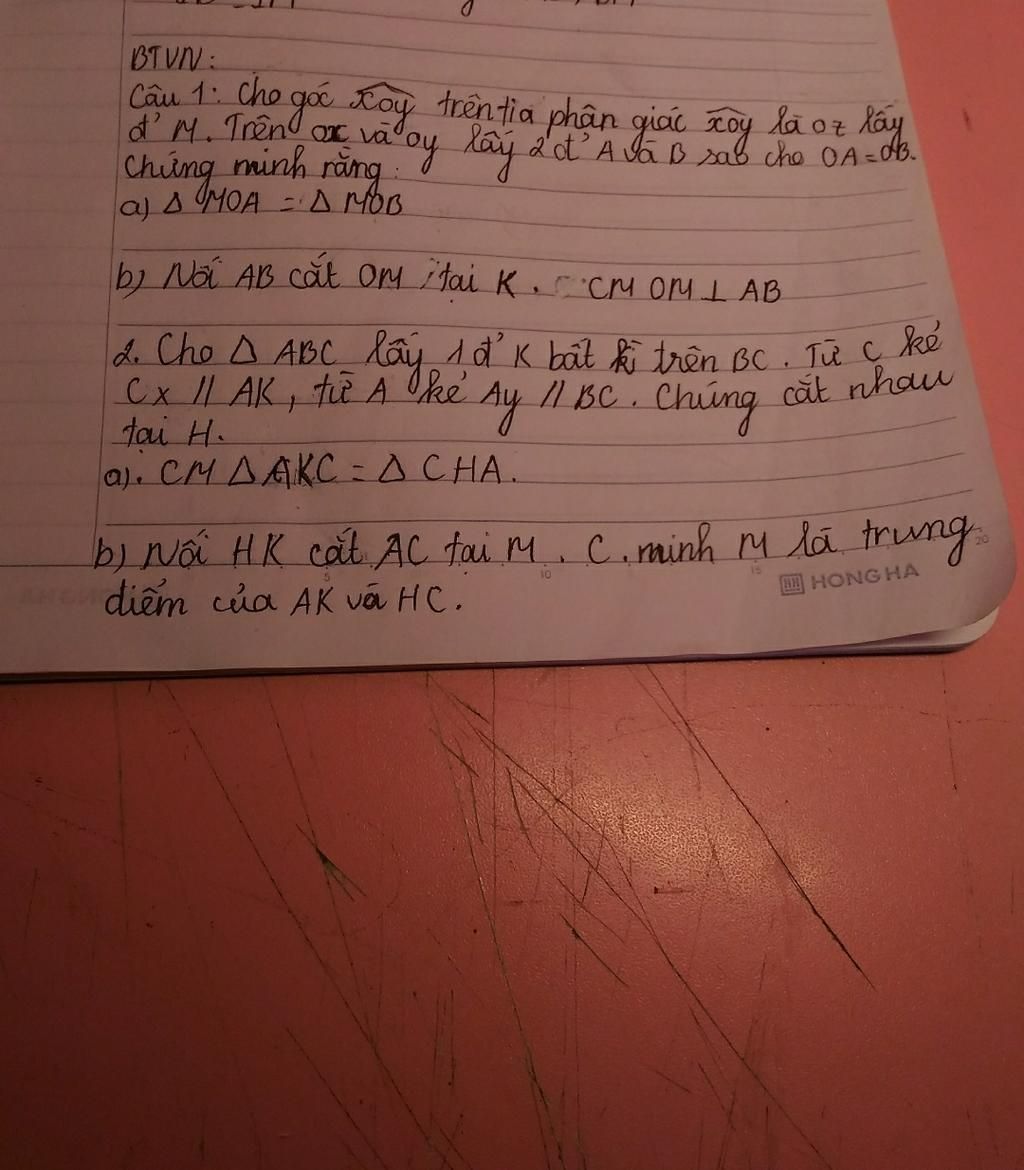 BTVN:
Câu 1: Cho góc xOy trên tia phân giác xOy là Oz lấy
đ' M. Trên Ox và Oy lấy 2 đ' A và B sao cho OA = OB.
Chứng minh rằng:
a) Δ MOA = Δ MOB
b) Nối AB cắt OM tại K. CM OM ⊥ AB
2. Cho Δ ABC lấy 1 đ' K bất kì trên BC. Từ C kẻ
Cx // AK, từ A kẻ Ay // BC. Chúng cắt nhau
tại H.
a). CM Δ AKC = Δ CHA.
b) Nối HK cắt AC tại M. C. minh M là trung
điểm của AK và HC.
5 10 15 20
HONG HA